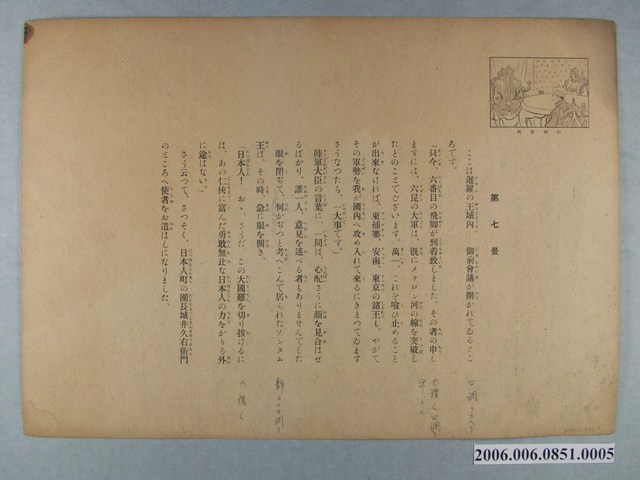 第七景
ここは暹羅の王城内　御前會議が開かれてゐるとこ
ろです。
「只今、六番目の飛脚が到着致しました。その者の申し
ますには、六昆の大軍は、既にメクロン河の線を突破し
たとのことでございます。萬一、これを喰ひ止めること
が出來なければ、東捕寨、安南、東京の諸王も、やがて
その軍勢を我が國内へ攻め入れて來るにきまつてゐます
さうなつたら、一大事です。」
陸軍大臣の言葉に、一同は、心配さうに顔を見合はせ
るばかり、誰一人、意見を述べる者もありませんでした
眼を閉ぢて、何かぢつと考へこんで居られたソンタム
王は、その時、急に眼を開き、
「日本人！　おゝ、さうだ、この大國難を切り拔けるに
は、あの仁俠に富んだ勇敢無比な日本人の力をかりる外
に途はない。」
さう云つて、さつそく、日本人町の團長城井久右衛門
のところへ使者をお遣はしになりました。
2006.006.0851.0005